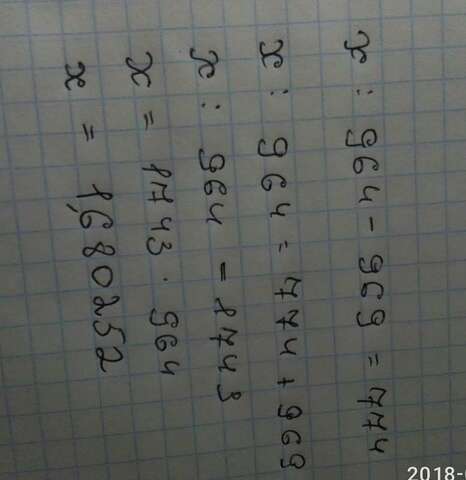 x : 964 - 969 = 774
x : 964 = 774 + 969
x : 964 = 1743
x = 1743 · 964
x = 1,680252
2018-